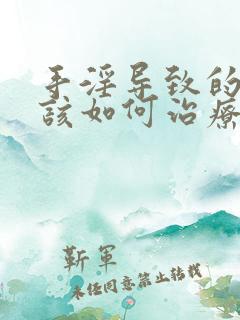 手淫导致的
该如何治疗
靳军
未经同意禁止转载